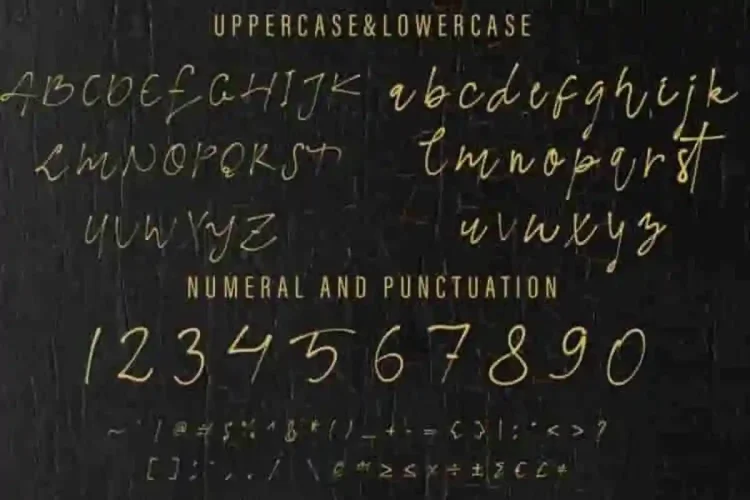 UPPERCASE&LOWERCASE
ABCDEFGHIJK abcdefghijk
LMNOPQRST lmnopqrst
UVWXYZ uvwxyz
NUMERAL AND PUNCTUATION
1234567890